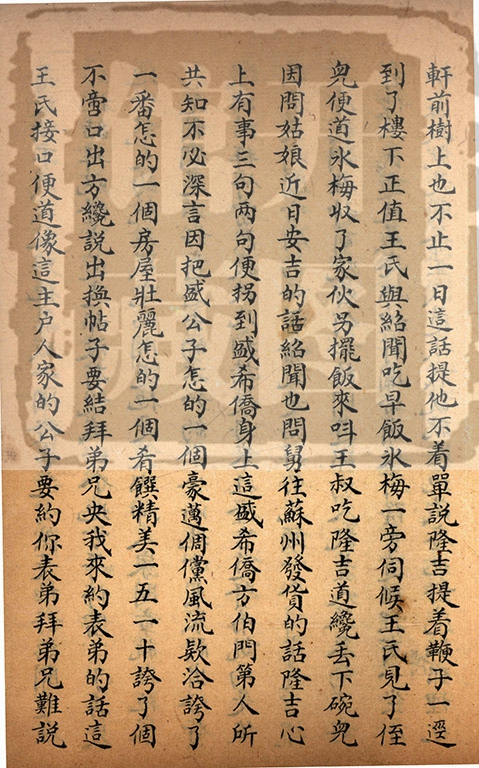 軒前樹上也不止一日這話提他不着單說隆吉提着鞭子一逕
到了樓下正值王氏與紹聞吃早飯氷梅一旁伺候王氏見了侄
兒便道氷梅収了家伙另擺飯來呌王叔吃隆吉道纔丢下碗兒
因問姑娘近日安吉的話紹聞也問舅往蘇州發貨的話隆吉心
上有事三句兩句便拐到盛希僑身上這盛希僑方伯門第人所
共知不必深言因把盛公子怎的一個豪邁倜儻風流欵洽誇了
一番怎的一個房屋壯麗怎的一個肴饌精美一五一十誇了個
不啻口出方纔說出換帖子要結拜弟兄央我來約表弟的話這
王氏接口便道像這主户人家的公子要約你表弟拜弟兄難說